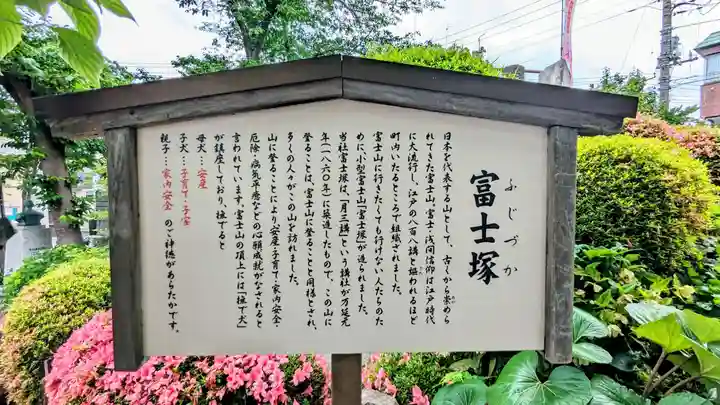 富士塚
ふじづか
日本を代表する山として、古くから崇めら
れてきた富士山。富士・浅間信仰は江戸時代
に大流行し、江戸の八百八講と謳われるほど
町内いたるところで組織されました。
富士山に行きたくても行けない人たちのた
めに、小型富士山「富士塚」が造られました。
当社富士塚は、「月三講」という講社が万延元
年(一八六〇年)に築造したもので、この山に
登ることは、富士山に登ることと同様とされ、
多くの人々がこの山を訪れました。
山に登ることにより「安産・子育て・家内安全・
厄除・病気平癒などの心願成就がなされると
言われています。富士山の頂上には「撫で犬」
が鎮座しており、撫でると
母犬…安産
子犬…子育て・子宝
親子…家内安全 のご神徳があらたかです。